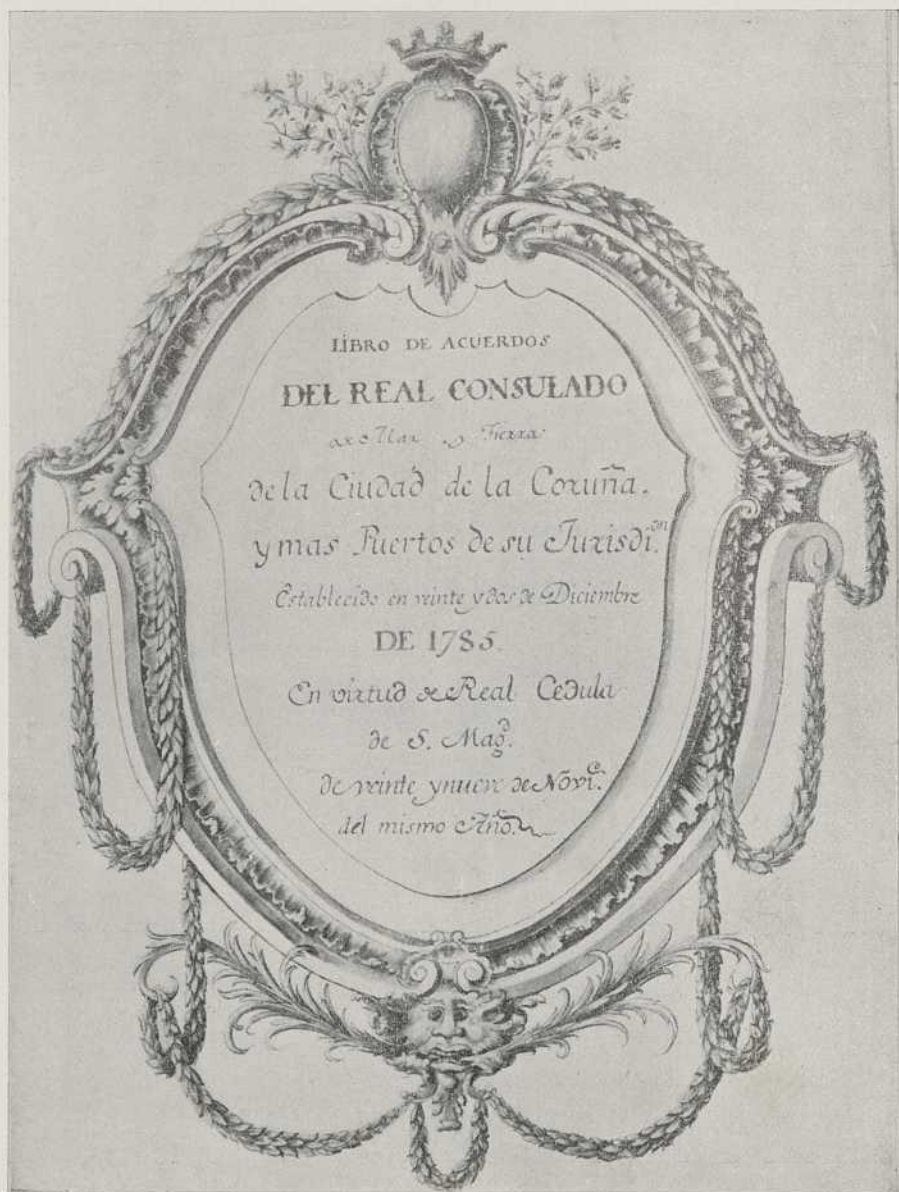 LIBRO DE ACUERDOS
DEL REAL CONSULADO
de Mar y Tierra
de la Ciudad de la Coruña.
y mas Puertos de su Jurisdi.on
Establecido en veinte y dos de Diciembre
DE 1785.
En virtud de Real Cedula
de S. Magd.
de veinte y nueve de Novie.
del mismo Año.